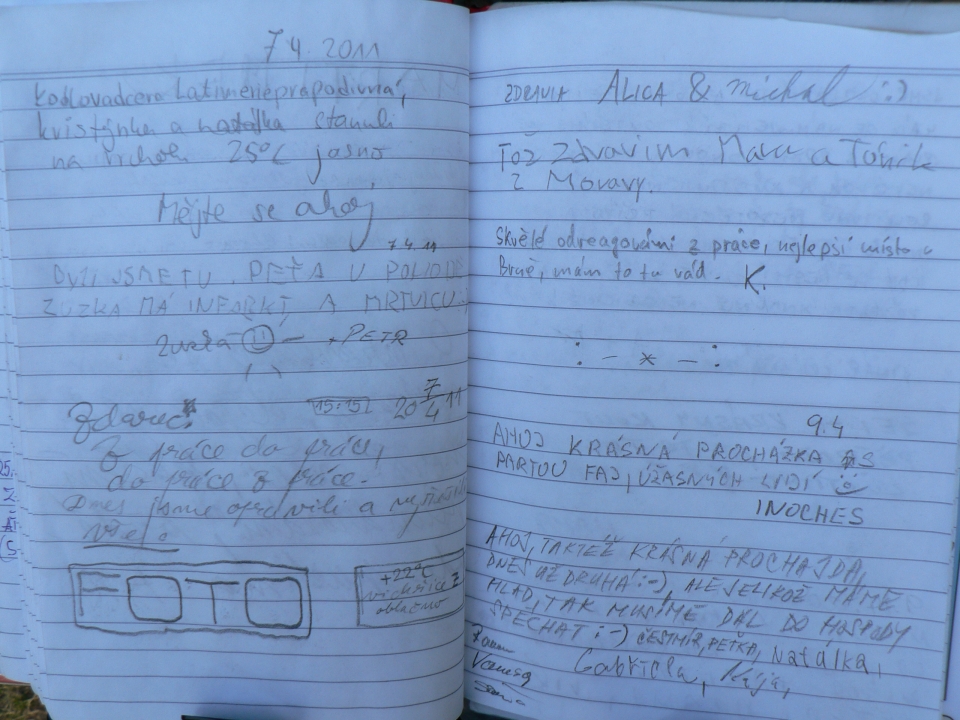 7.4. 2011
kristýnka a natálka stanuli
na vrchole 25°C jasno
Mějte se ahoj
7.4.11
BYLI JSME TU. PEŤA U POLIODĚ
ZUZKA MÁ INFORKT A MRTVICU
Zuzka PETR
Zdarec 15:15 20 7/4 11
Z práce do práce,
do práce z práce.
Dnes jsme opravili a
vše.
FOTO
+22°C
vichřice
oblačno
ZDRAVIA ALICA & michal :)
Tož zdravim Maru a Toník
z Moravy.
Skvělé odreagování z práce, nejlepší místo v
Brně, mám to tu rád. K.
: - * - :
9.4
AHOJ KRÁSNÁ PROCHÁZKA S
PARTOU FAJ, ÚŽASNÝCH LIDÍ
INOCHES
AHOJ, TAKTÉŽ KRÁSNÁ PROCHAJDA,
DNES UŽ DRUHÁ :-), ALE JELIKOŽ MÁME
HLAD, TAK MUSÍME DÁL DO HOSPODY
SPĚCHAT :-) ČESTMÍR, PEŤKA, Natálka,
Gabriela, Kája,
Vanesa